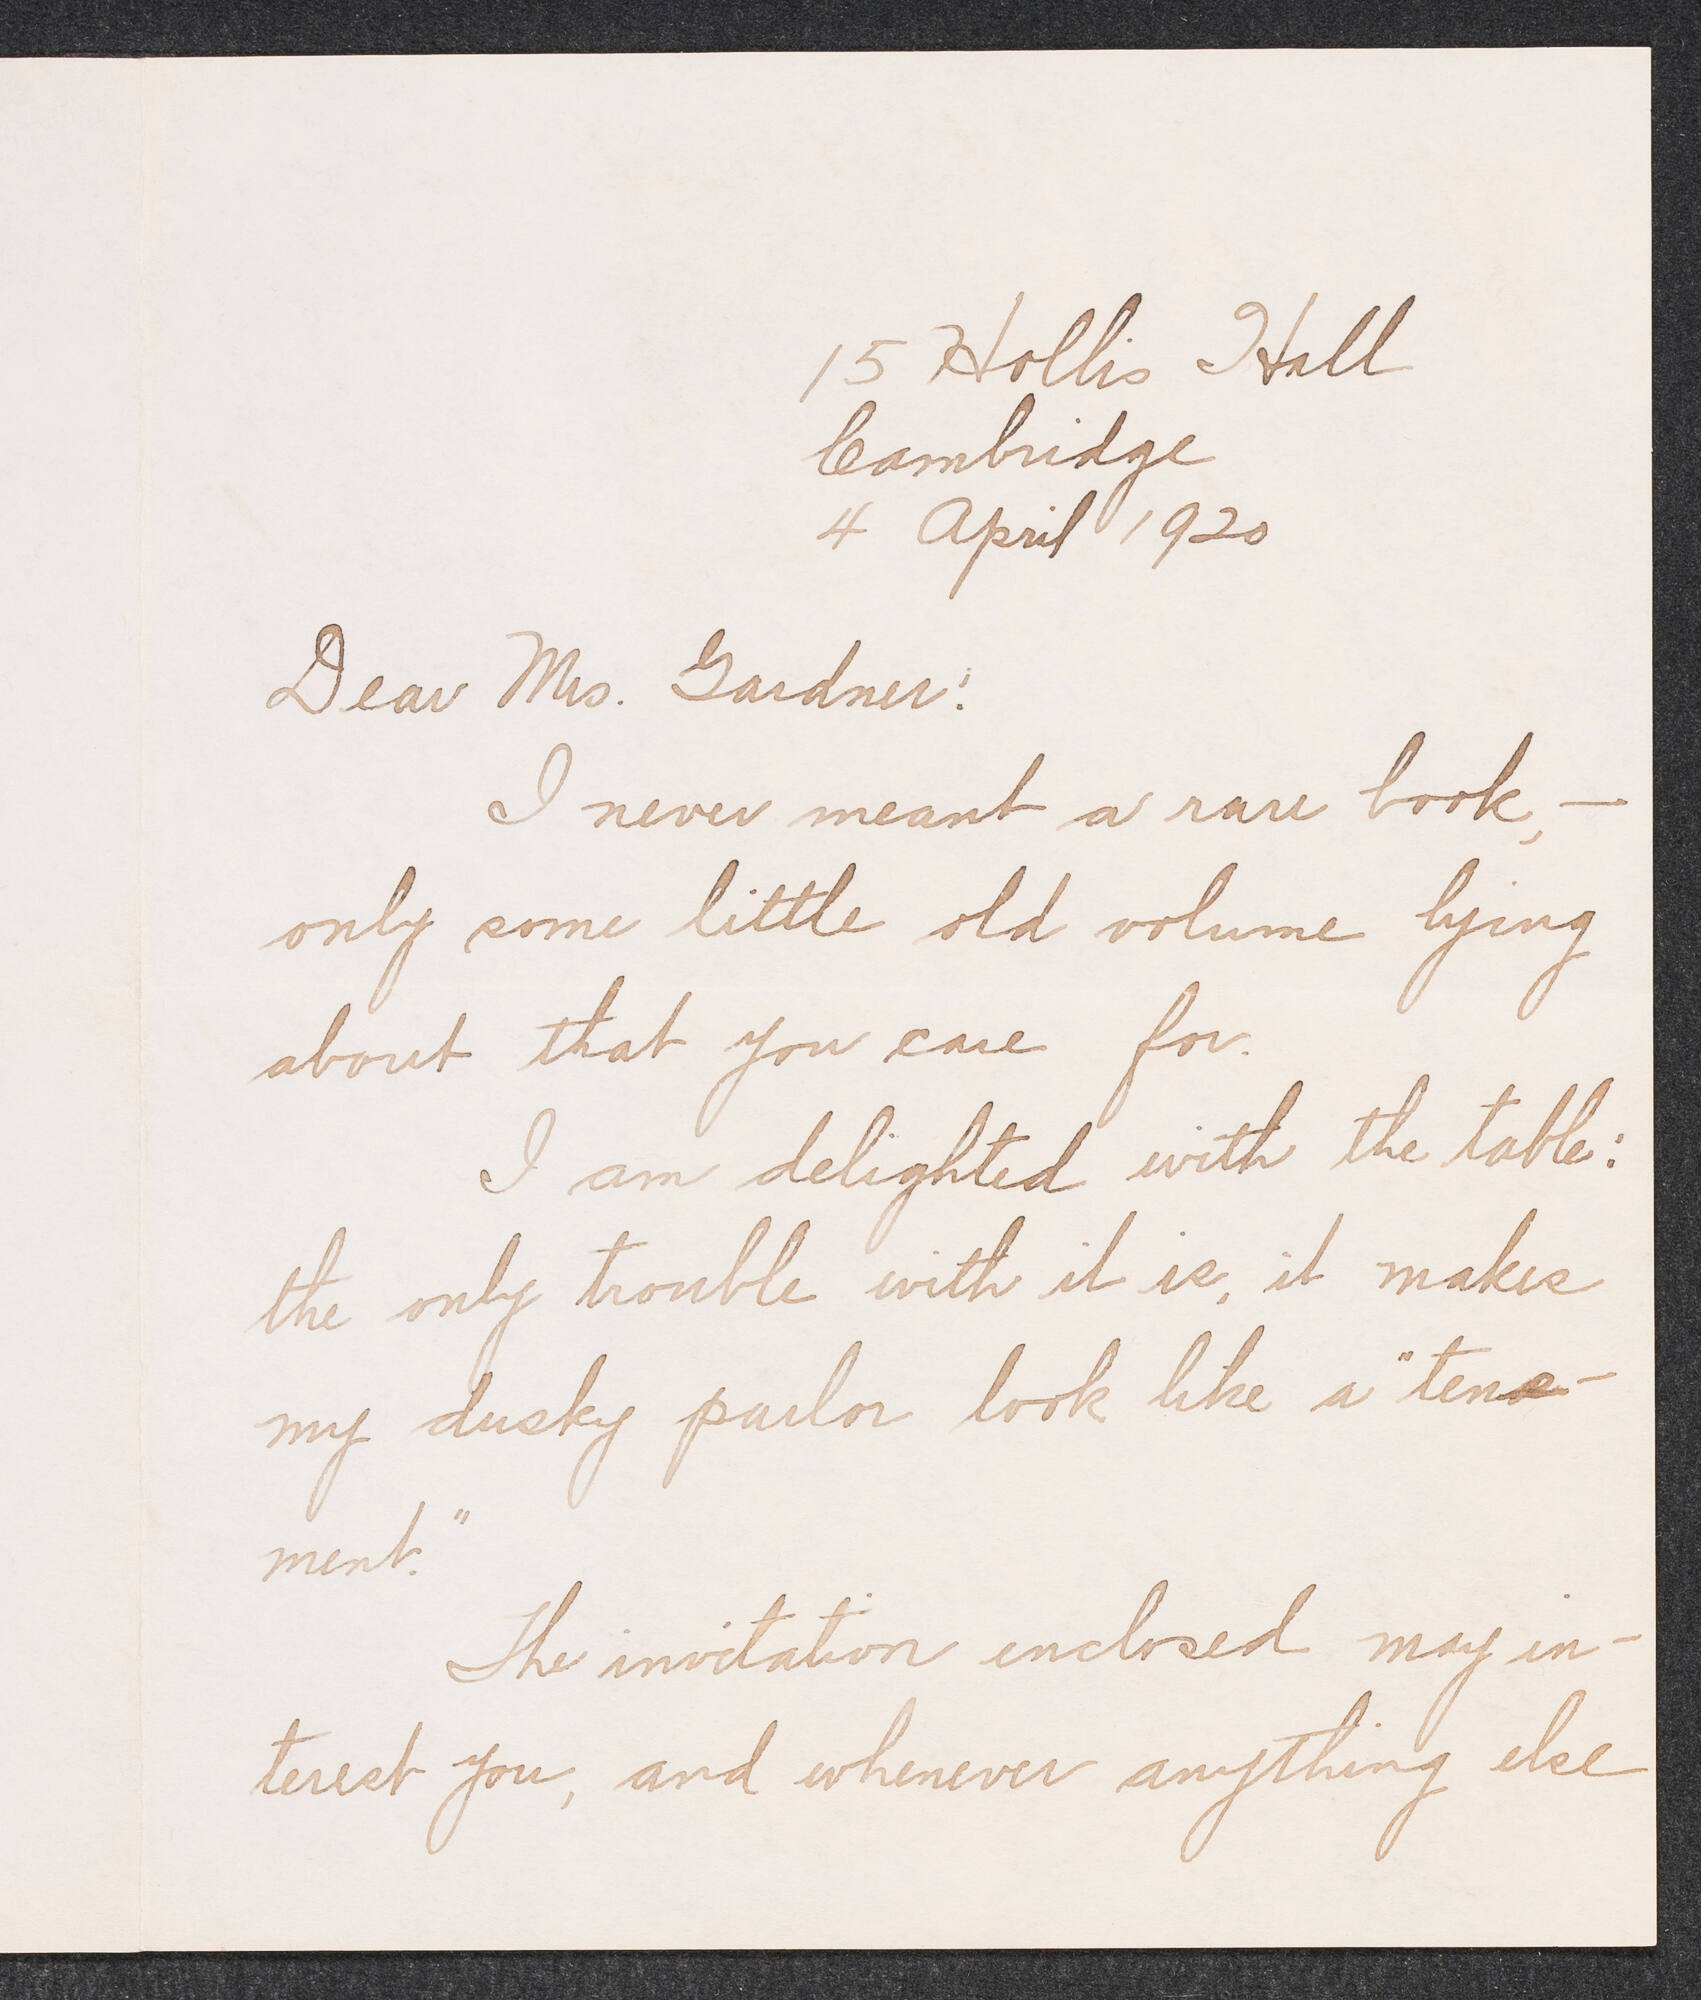 15 Hollis Hall
Cambridge
4 April 1920
Dear Mrs. Gardner:
I never meant a rare book, —
only some little old volume lying
about that you care for.
I am delighted with the table:
the only trouble with it is, it makes
my dusky parlor look like a "tene-
ment."
The invitation enclosed may in-
terest you, and whenever anything else